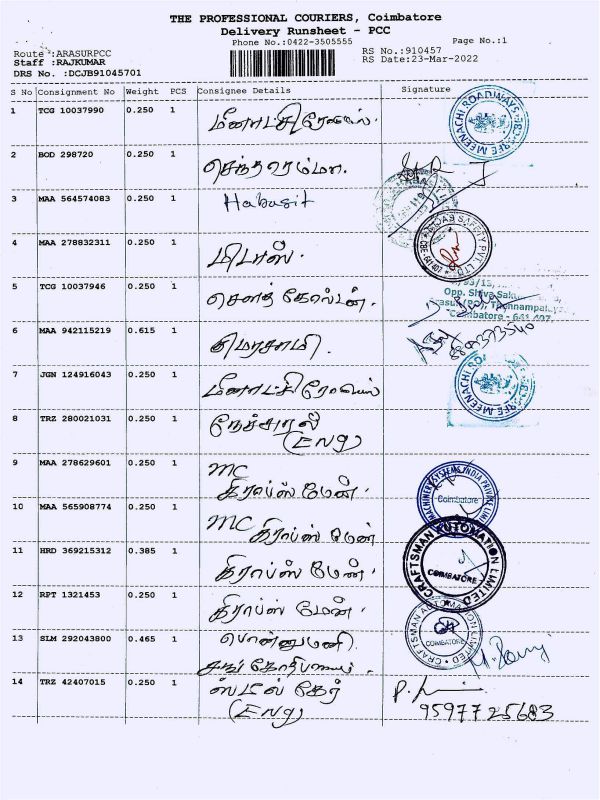 THE PROFESSIONAL COURIERS, Coimbatore
Delivery Runsheet - PCC
Phone No.:0422-3505555
Page No.:1
Route :ARASURPCC
RS No.:910457
Staff :RAJKUMAR
RS Date:23-Mar-2022
DRS No. :DCJB91045701
S No Consignment No Weight PCS Consignee Details Signature
1 TCG 10037990 0.250 1 மீனாட்சி ரோடுவேஸ்.
MEENACHI ROADWAYS
2 BOD 298720 0.250 1
3 MAA 564574083 0.250 1 Habasit
4 MAA 278832311 0.250 1 மிடாஸ்.
5 TCG 10037946 0.250 1 சௌத் கோல்டன்.
Opp. Shiva
Coimbatore - 641 407
6 MAA 942115219 0.615 1 குமரசாமி.
7 JGN 124916043 0.250 1 மீனாட்சி ரோடுவேஸ்
MEENACHI
8 TRZ 280021031 0.250 1 நேச்சுரல்
(Eng)
9 MAA 278629601 0.250 1 MC
கிராப்ஸ் மேன்.
MACHINERY SYSTEMS INDIA PRIVATE LIMI
Coimbatore
10 MAA 565908774 0.250 1 MC கிராப்ஸ் மேன்
11 HRD 369215312 0.385 1 கிராப்ஸ் மேன்.
CRAFTSMAN AUTOMATION LIMITED
COIMBATORE
12 RPT 1321453 0.250 1 கிராப்ஸ் மேன்.
13 SLM 292043800 0.465 1 பொன்னுமணி
CRAFTSMAN AUTOMATION LIMITED
COIMBATORE
14 TRZ 42407015 0.250 1 ஸ்டீல் கேர்
(Eng)
9597725683